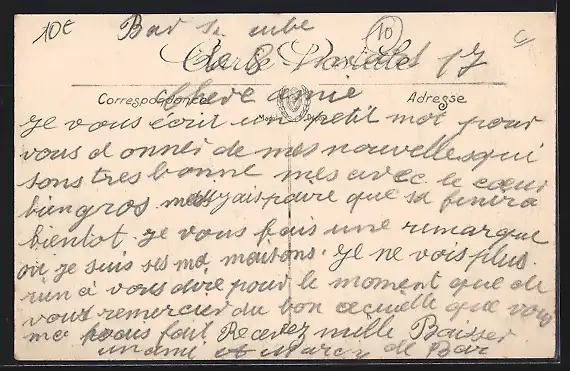 10€ Bar 10
Carte Postale 17
Chere amie
Correspondance Adresse
Je vous écrit un petit mot pour
vous donner de mes nouvelles qui
sons tres bonne mes avec le cœur
bien gros. mes j'ais que sa finira
bientot. je vous fais une remarque
ou je suis ses ma maisons. Je ne vois plus
rien a vous dire pour le moment que de
vous remercier du bon acceuille que vous
me fait Recevez mille Baisser
un ami et Marcy de Bar